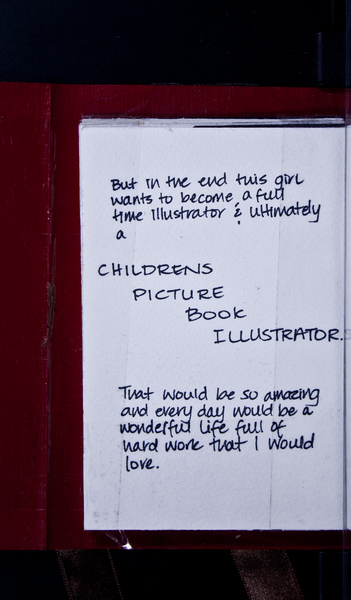 But in the end this girl
wants to become a full
time illustrator & ultimately
a
CHILDRENS
PICTURE
BOOK
ILLUSTRATOR.
That would be so amazing
and every day would be a
wonderful life full of
hard work that I would
love.